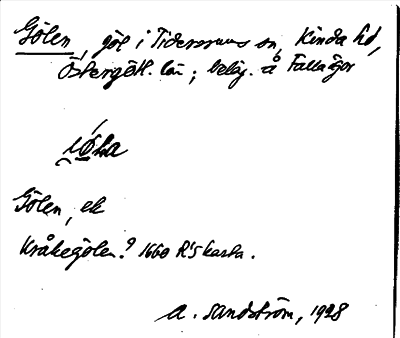 Gölen, göl i Tidersrums sn, Kinda hd,
Östergötl. län; beläg. å Fallaägor
Gölen, ek
Kråkegölen? 1660 R's karta.
A. Sandström, 1928